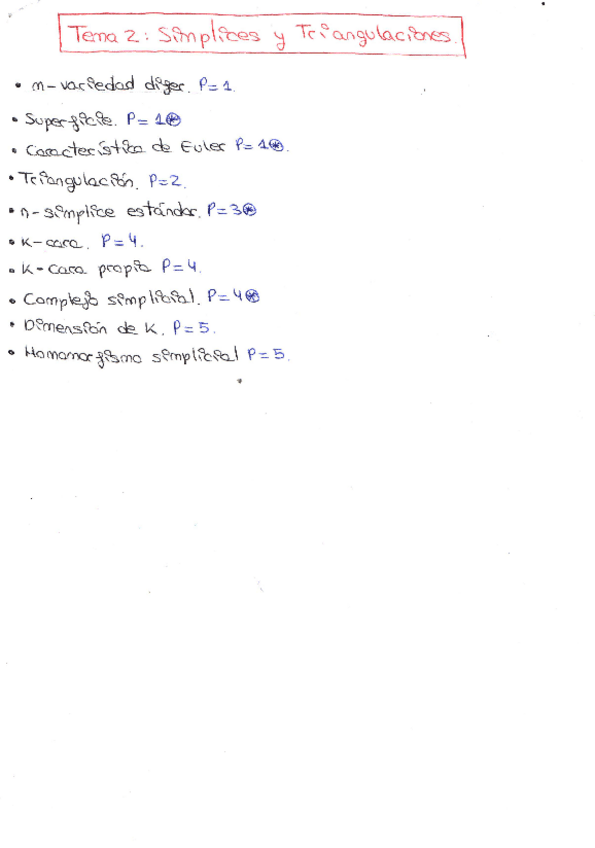 Tema 2: Simplices y Triangulaciones.
• n-variedad difer. P=1.
• Superficie. P=1⊛
• Característica de Euler P=1⊛.
• Triangulación. P=2.
• n-simplice estándar. P=3⊛
• K-cara. P=4.
• K-cara propia P=4.
• Complejo simplicial. P=4⊛
• Dimensión de K. P=5.
• Homomorfismo simplicial P=5.